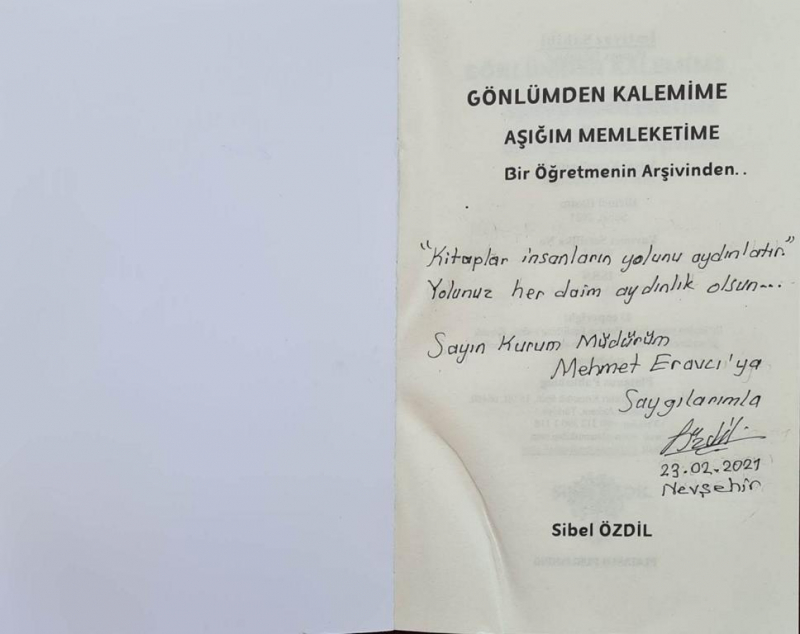 GÖNLÜMDEN KALEMİME
AŞIĞIM MEMLEKETİME
Bir Öğretmenin Arşivinden..
"Kitaplar insanların yolunu aydınlatır."
Yolunuz her daim aydınlık olsun...
Sayın Kurum Müdürüm
Mehmet Eravcı'ya
Saygılarımla
Özdil
23.02.2021
Nevşehir
Sibel ÖZDİL